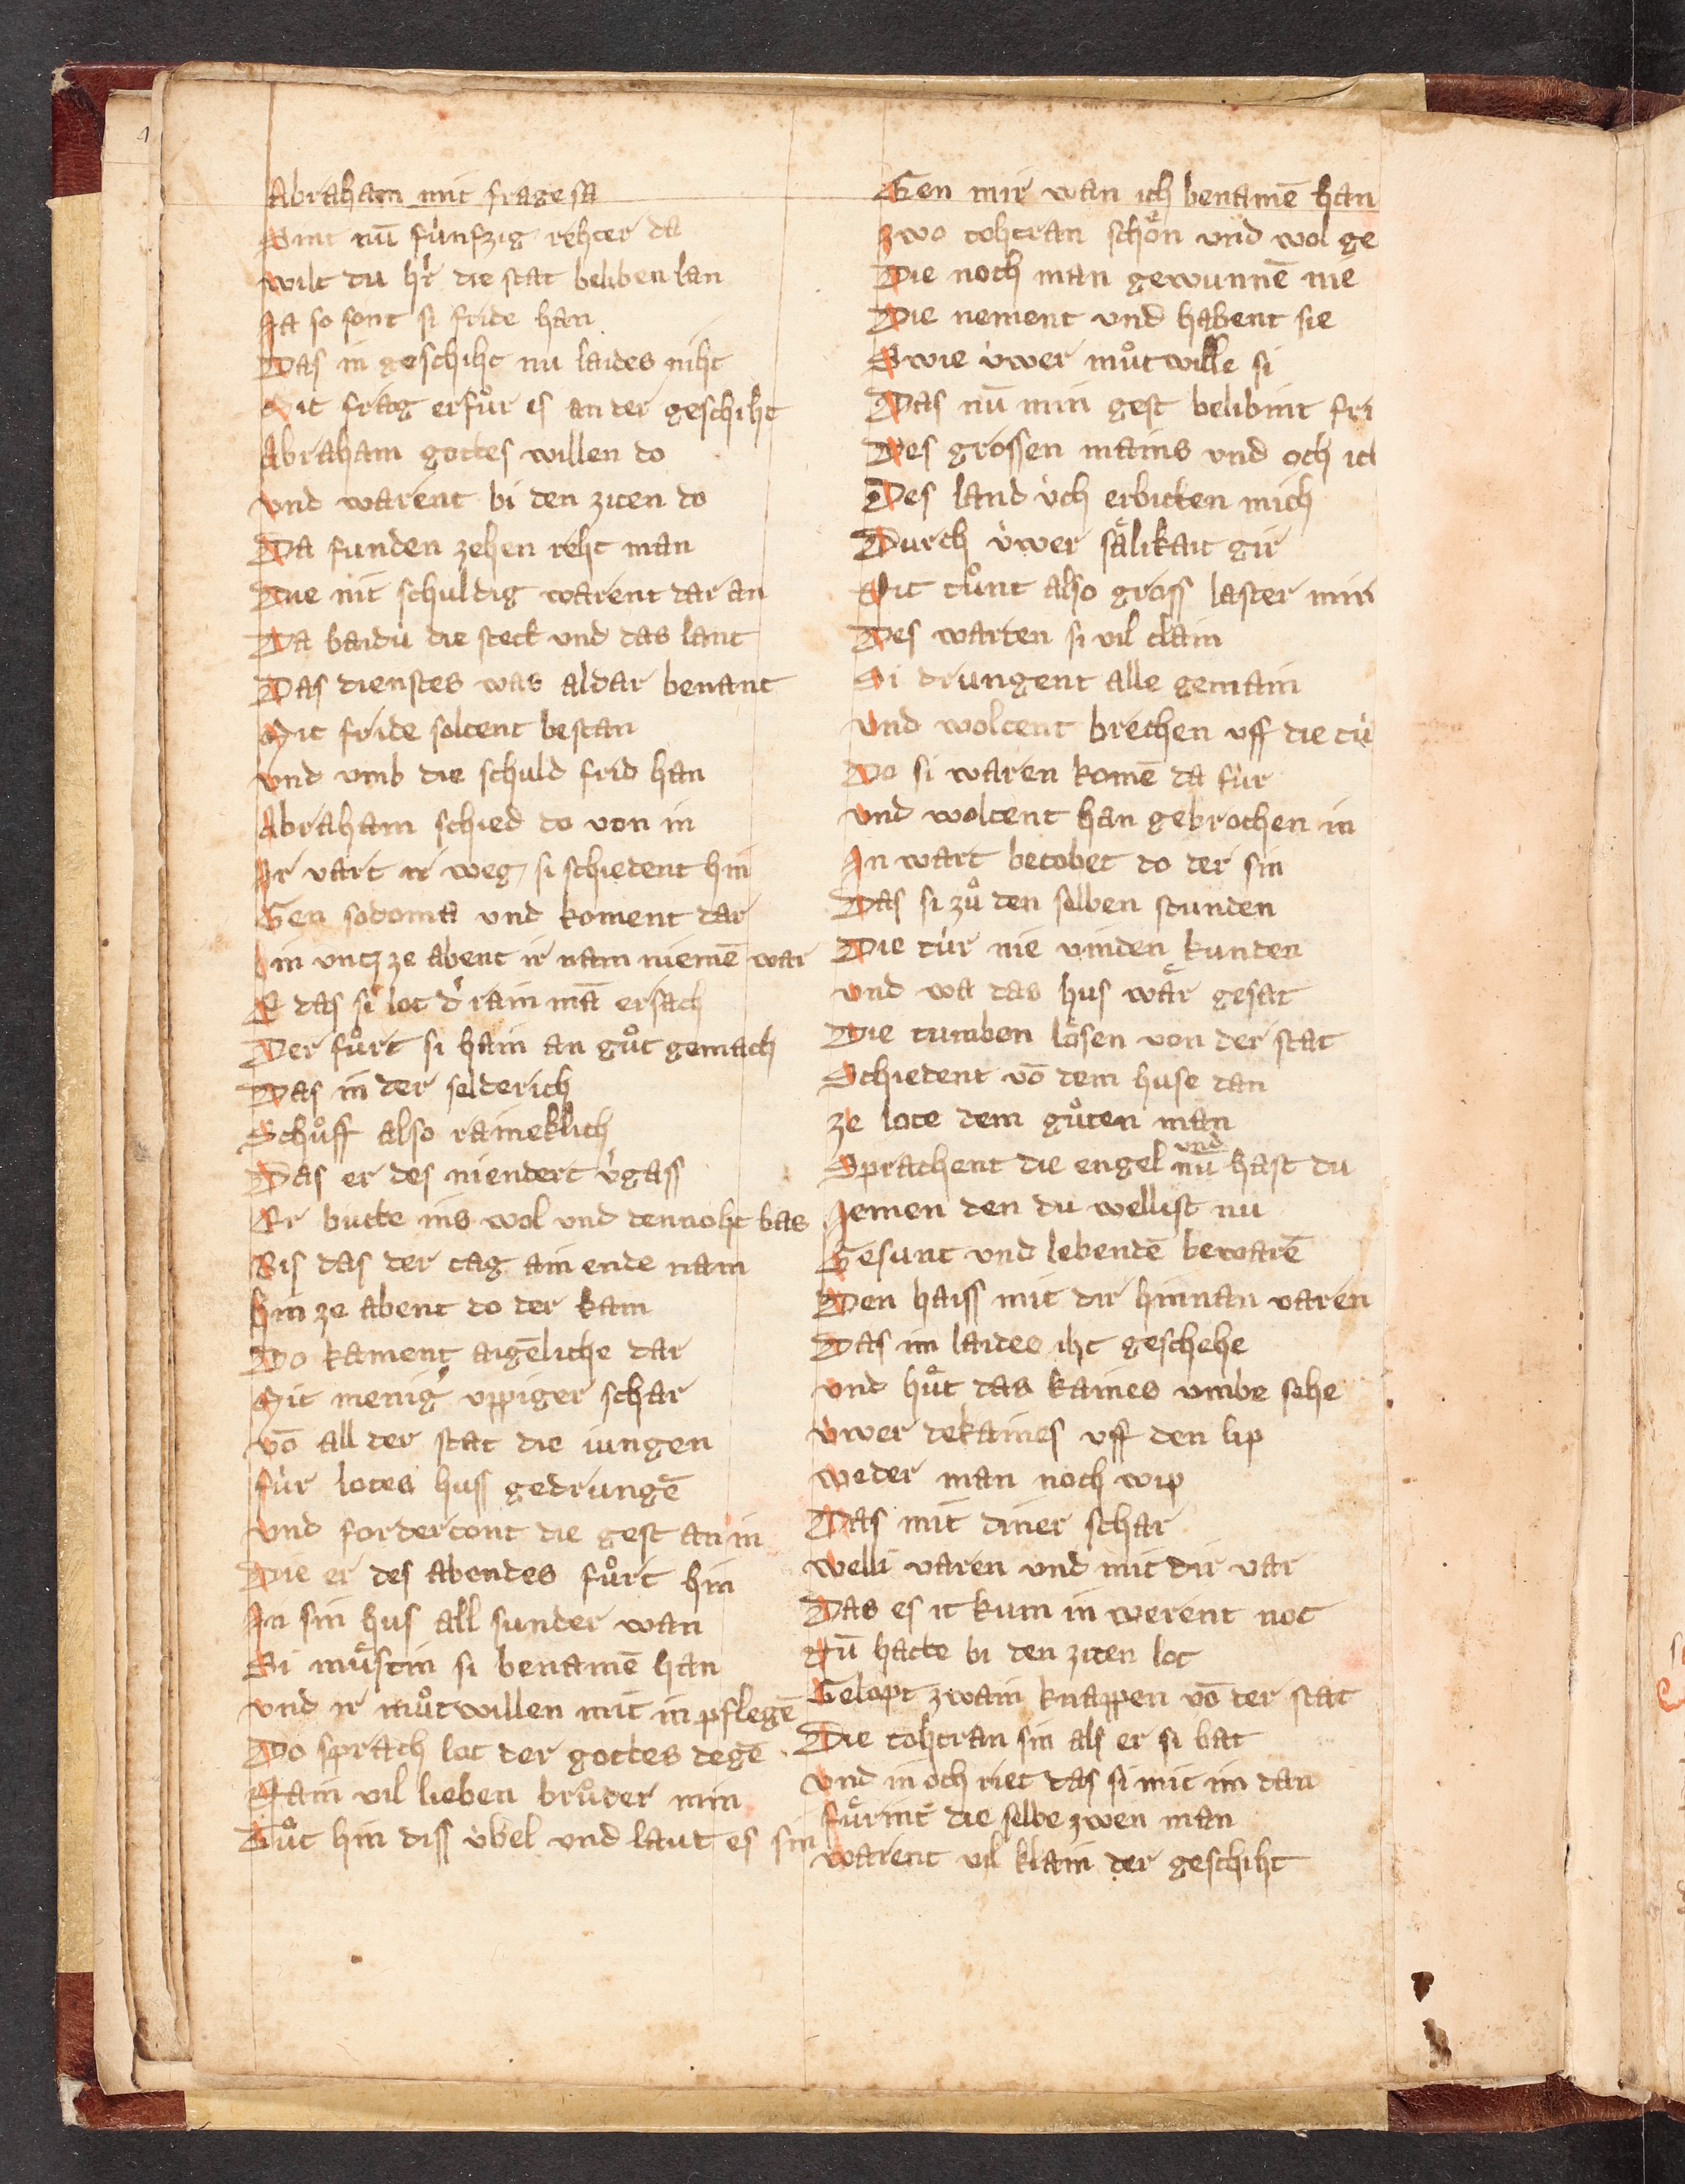 Abraham mit frage sa
Sint nū fùnfzig rehter da
wilt du hr̓ die stat beliben lan
Ja so sont si fride han
Das in geschiht nu laides niht
Mit frag erfůr is an der geschiht
Abraham gottes willen do
vnd warent bi den ziten do
Da funden zehen reht man
Die nit schuldig warent dar an
Da baidù die stett vnd das lant
Das dienstes was aldar benant
Mit fride soltent bestan
vnd vmb die schuld frid han
Abraham schied do von in
Ir vart ir weg / si schiedent hin
Gen sodoma vnd koment dar
hin vntz ze abent ir nam niemē war
E das si lot d̓ rain mā ersach
Der fůrt si hain an gůt gemach
Das in der selderich
Schůff also raineklich
Das er des niendert v̓gass
Er butte ins wol vnd dennoht bas
Bis das der tag ain ende nam
hin ze abent do der kam
Do kament aigēliche dar
Mit menig̓ vppiger schar
vō all der stat die iungen
fùr lotes huss gedrungē
vnd fordertont die gest an in
Die er des abendes fůrt hin
In sin hus all sunder wan
Si můstin si benamē han
vnd ir můtwillen mit in pflegē
Do sprach lot der gottes degē
Nain vil lieben brůder min
Tůt hin diss ùbel vnd laut es sin
Gen mir wan ich benamē han
zwo tohtran schön vnd wol ge
Die noch man gewunnē nie
Die nement vnd habent sie
Swie ùwer můtwille si
Das nū min gest belibint fri
Des grossen mains vnd och ich
Des land ùch erbitten mich
Durch ùwer sälikait gir
Nit tůnt also gross laster mir
Des warten si vil clain
Si drungent alle gemain
vnd woltent brechen vff die tù
Do si waren komē da fùr
vnd woltent han gebrochen in
In wart betobet do der sin
Das si zů den selben stunden
Die tùr nie vinden kunden
vnd wa das hus wär gesat
Die tumben lösen von der stat
Schiedent vō dem huse dan
ze lote dem gůten man
Sprachent die engel vnd nū hast du
Jemen den du wellist nu
Gesunt vnd lebendē bewarē
Den haiss mit dir hinnan varen
Das im laides iht geschehe
vnd hůt das kaines vmbe sehe
ùwer dekaines vff den lip
weder man noch wip
Das mit diner schar
welli varen vnd mit dir var
Das es it kum in werent not
Nū hatte bi den ziten lot
Gelopt zwain knappen vō der stat
Die tohtran sin als er si bat
vnd in och riet das si mit im dan
fůrint die selbe zwen man
warent vil klain der geschiht